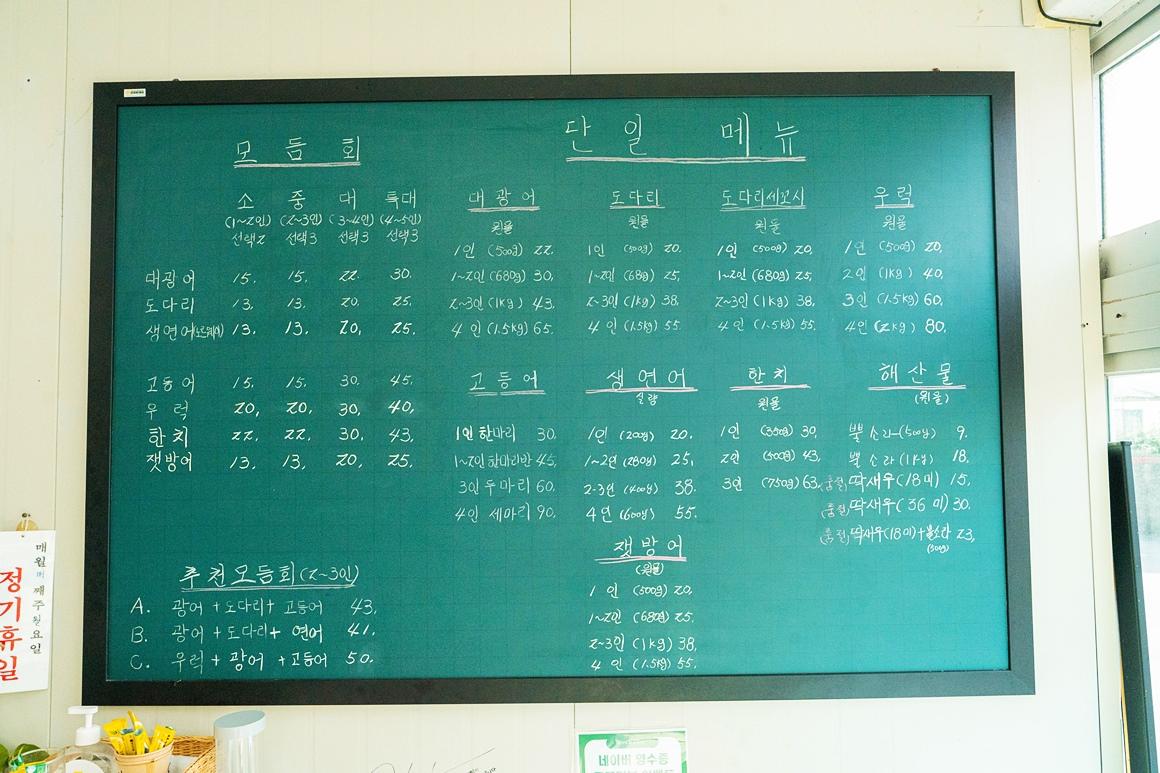 모듬회
소 중 대 특대
(1~2인) (2~3인) (3~4인) (4~5인)
선택2 선택3 선택3 선택3
대광어 15. 15. 22. 30.
도다리 13. 13. 20. 25.
생연어(노르웨이) 13. 13. 20. 25.
고등어 15. 15. 30. 45.
우럭 20. 20. 30. 40.
한치 22. 22. 30. 43.
잿방어 13. 13. 20. 25.
추천모듬회(2~3인)
A. 광어+도다리+고등어 43.
B. 광어+도다리+연어 41.
C. 우럭+광어+고등어 50.
단일 메뉴
대광어
원물
1인 (500g) 22.
1~2인 (680g) 30.
2~3인 (1kg) 43.
4인 (1.5kg) 65.
도다리
원물
1인 (500g) 20.
1~2인 (68g) 25.
2~3인 (1kg) 38.
4인 (1.5kg) 55.
도다리세꼬시
원물
1인 (500g) 20.
1~2인 (680g) 25.
2~3인 (1kg) 38.
4인 (1.5kg) 55.
우럭
원물
1인 (500g) 20.
2인 (1kg) 40.
3인 (1.5kg) 60.
4인 (2kg) 80.
고등어
1인 한마리 30.
1~2인 한마리반 45.
3인 두마리 60.
4인 세마리 90.
생연어
실량
1인 (200g) 20.
1~2인 (280g) 25.
2~3인 (400g) 38.
4인 (600g) 55.
한치
원물
1인 (350g) 30.
2인 (500g) 43.
3인 (750g) 63.
해산물
(원물)
뿔소라(500g) 9.
뿔소라(1kg) 18.
(품절)딱새우(18미) 15.
(품절)딱새우(36미) 30.
(품절)딱새우(18미)+뿔소라 23.
(500g)
잿방어
(원물)
1인 (500g) 20.
1~2인 (680g) 25.
2~3인 (1kg) 38.
4인 (1.5kg) 55.
매월 째주 월요일
정기휴일
네이버 영수증